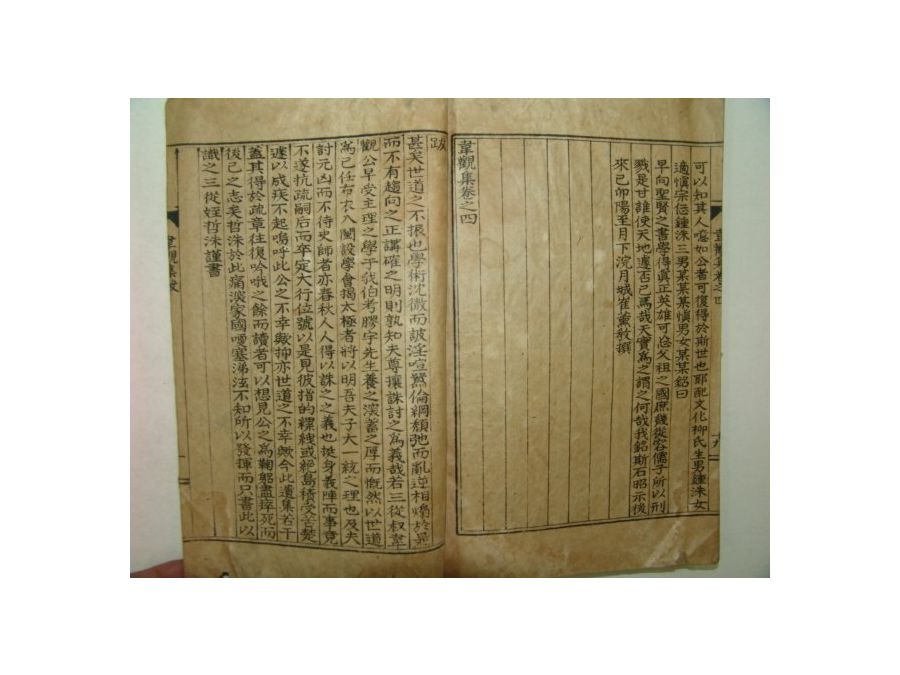 可以知其人噫如公者可復得於斯世也耶配文化柳氏生男鍾洙女
適愼宗 鍾洙三男某某某愼男女某某銘曰
早向聖賢之書學得眞正英雄可 父祖之國庶幾從容儒子所以刑
戮是甘誰使天地遽否已焉哉天實爲之謂之何哉我銘斯石昭示後
來己卯陽至月下浣月城崔 敎撰
韋觀集卷之四
跋
甚矣世道之不振也學術沈微而詖淫喧 倫綱頹弛而亂逆相 於是
而不有趨向之正講確之明則孰知夫尊攘誅討之爲義哉若三從叔韋
觀公早受主理之學于我伯考膠宇先生養之深蓄之厚而慨然以世道
爲己任布衣入 設學會揭太極者將以明吾夫子大一統之理也及夫
討元凶而不待史師者亦春秋人人得以誅之之義也挺身義陣而事竟
不遂抗疏嗣后而卒定大行位號以是見彼指的縲絏或絶島積受苦楚
遽以成疾不起嗚呼此公之不幸歟抑亦世道之不幸歟今此遺集若干
蓋其得於疏章往復吟哦之餘而讀者可以想見公之爲鞠躬盡瘁死而
後已之志矣哲洙於此痛深家國哽塞涕泫不知所以發揮而只書此以
識之三從姪哲洙謹書
韋觀集卷之四
韋觀集跋